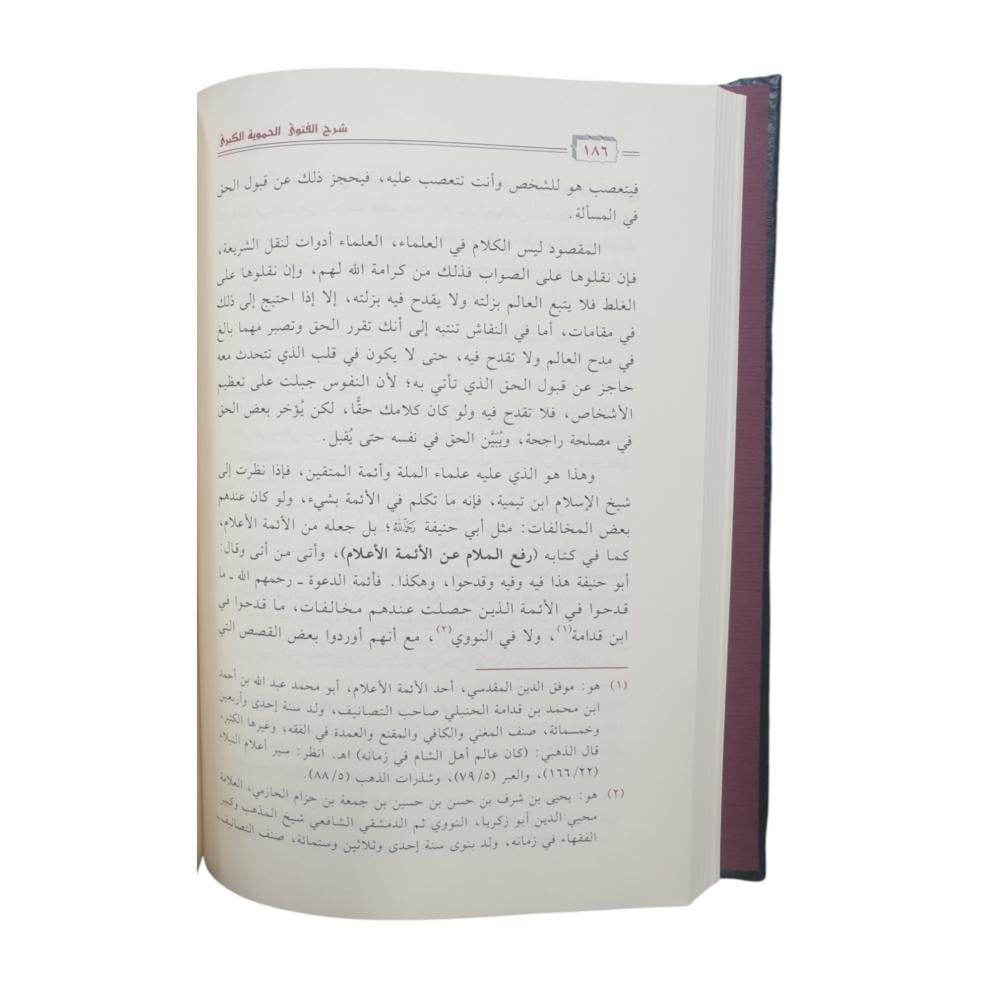 شرح الفتوى الحموية الكبرى
١٨٦
فيتعصب هو للشخص وأنت تتعصب عليه، فيحجز ذلك عن قبول الحق
في المسألة.
المقصود ليس الكلام في العلماء، العلماء أدوات لنقل الشريعة،
فإن نقلوها على الصواب فذلك من كرامة الله لهم، وإن نقلوها على
الغلط فلا يتبع العالم بزلته ولا يقدح فيه بزلته، إلا إذا احتيج إلى ذلك
في مقامات، أما في النقاش تنتبه إلى أنك تقرر الحق وتصبر مهما بالغ
في مدح العالم ولا تقدح فيه، حتى لا يكون في قلب الذي تتحدث معه
حاجز عن قبول الحق الذي تأتي به؛ لأن النفوس جبلت على تعظيم
الأشخاص، فلا تقدح فيه ولو كان كلامك حقًّا، لكن يُؤخر بعض الحق
في مصلحة راجحة، ويُبَيَّن الحق في نفسه حتى يُقبل.
وهذا هو الذي عليه علماء الملة وأئمة المتقين، فإذا نظرت إلى
شيخ الإسلام ابن تيمية، فإنه ما تكلم في الأئمة بشيء، ولو كان عندهم
بعض المخالفات: مثل أبي حنيفة رَحِمَهُ اللَّهُ؛ بل جعله من الأئمة الأعلام،
كما في كتابه (رفع الملام عن الأئمة الأعلام)، وأتى من أتى وقال:
أبو حنيفة هذا فيه وفيه وقدحوا، وهكذا. فأئمة الدعوة ـ رحمهم الله ـ ما
قدحوا في الأئمة الذين حصلت عندهم مخالفات، ما قدحوا في
ابن قدامة(١)، ولا في النووي(٢)، مع أنهم أوردوا بعض القصص التي
(١) هو: موفق الدين المقدسي، أحد الأئمة الأعلام، أبو محمد عبد الله بن أحمد
ابن محمد بن قدامة الحنبلي صاحب التصانيف، ولد سنة إحدى وأربعين
وخمسمائة، صنف المغني والكافي والمقنع والعمدة في الفقه، وغيرها الكثير،
قال الذهبي: (كان عالم أهل الشام في زمانه) اهـ. انظر: سير أعلام النبلاء
(١٦٦/٢٢)، والعبر (٧٩/٥)، وشذرات الذهب (٨٨/٥).
(٢) هو: يحيى بن شرف بن حسن بن حسين بن جمعة بن حزام الحازمي، العلامة
محيي الدين أبو زكريا، النووي ثم الدمشقي الشافعي شيخ المذهب وكبير
الفقهاء في زمانه، ولد بنوى سنة إحدى وثلاثين وستمائة، صنف التصانيف،